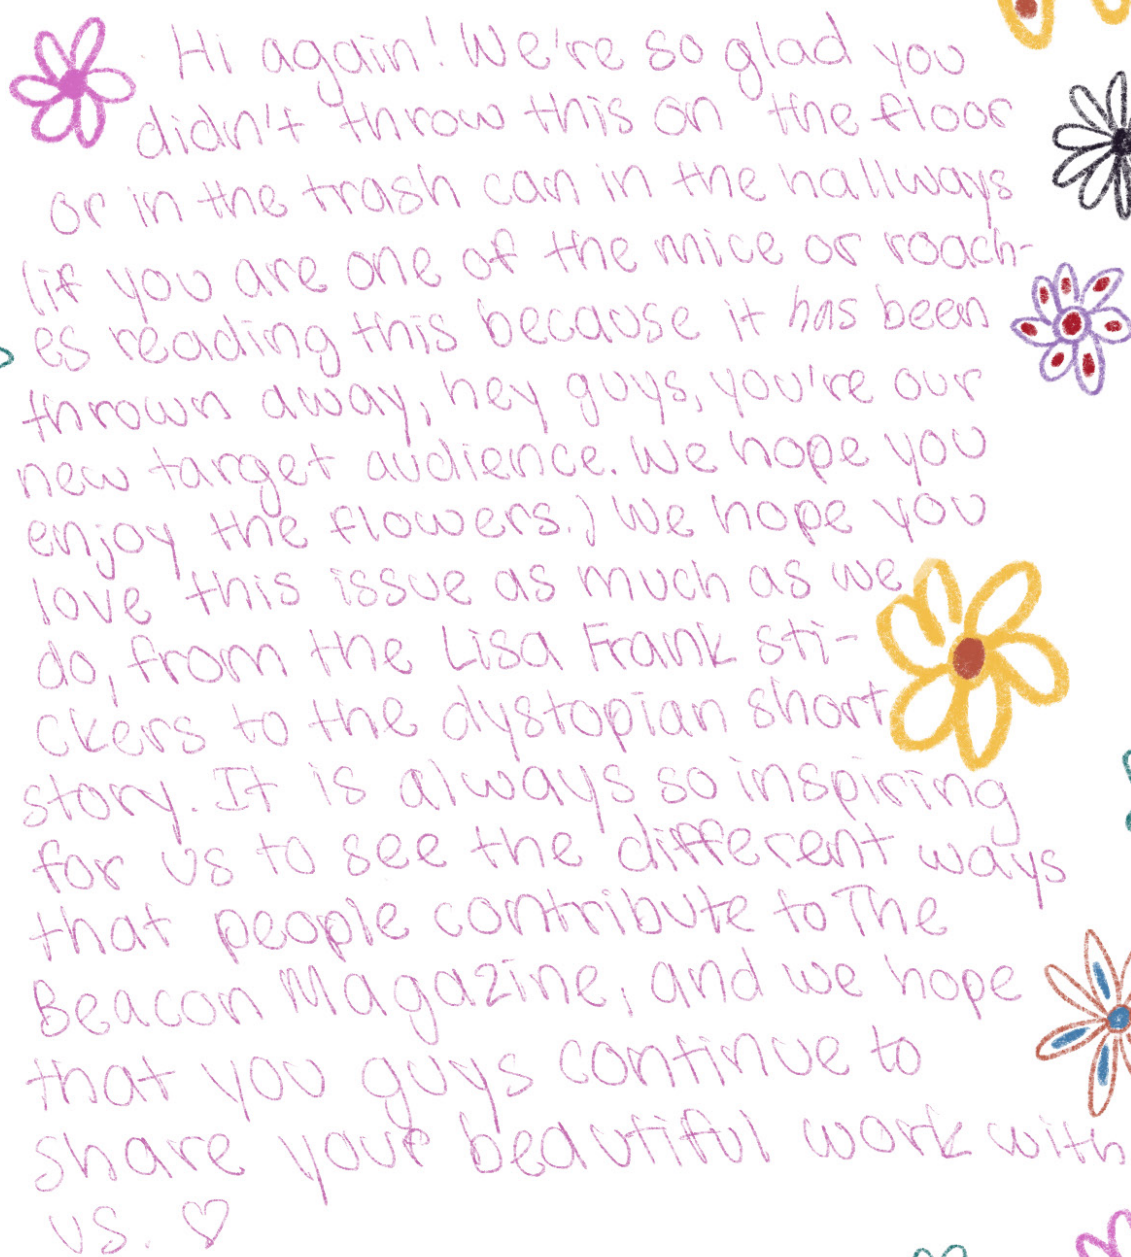 Hi again! We're so glad you
didn't throw this on the floor
or in the trash can in the hallways
(if you are one of the mice or roach-
es reading this because it has been
thrown away, hey guys, you're our
new target audience. We hope you
enjoy the flowers.) We hope you
love this issue as much as we
do, from the Lisa Frank sti-
ckers to the dystopian short
story. It is always so inspiring
for us to see the different ways
that people contribute to The
Beacon Magazine, and we hope
that you guys continue to
share your beautiful work with
us. ♡